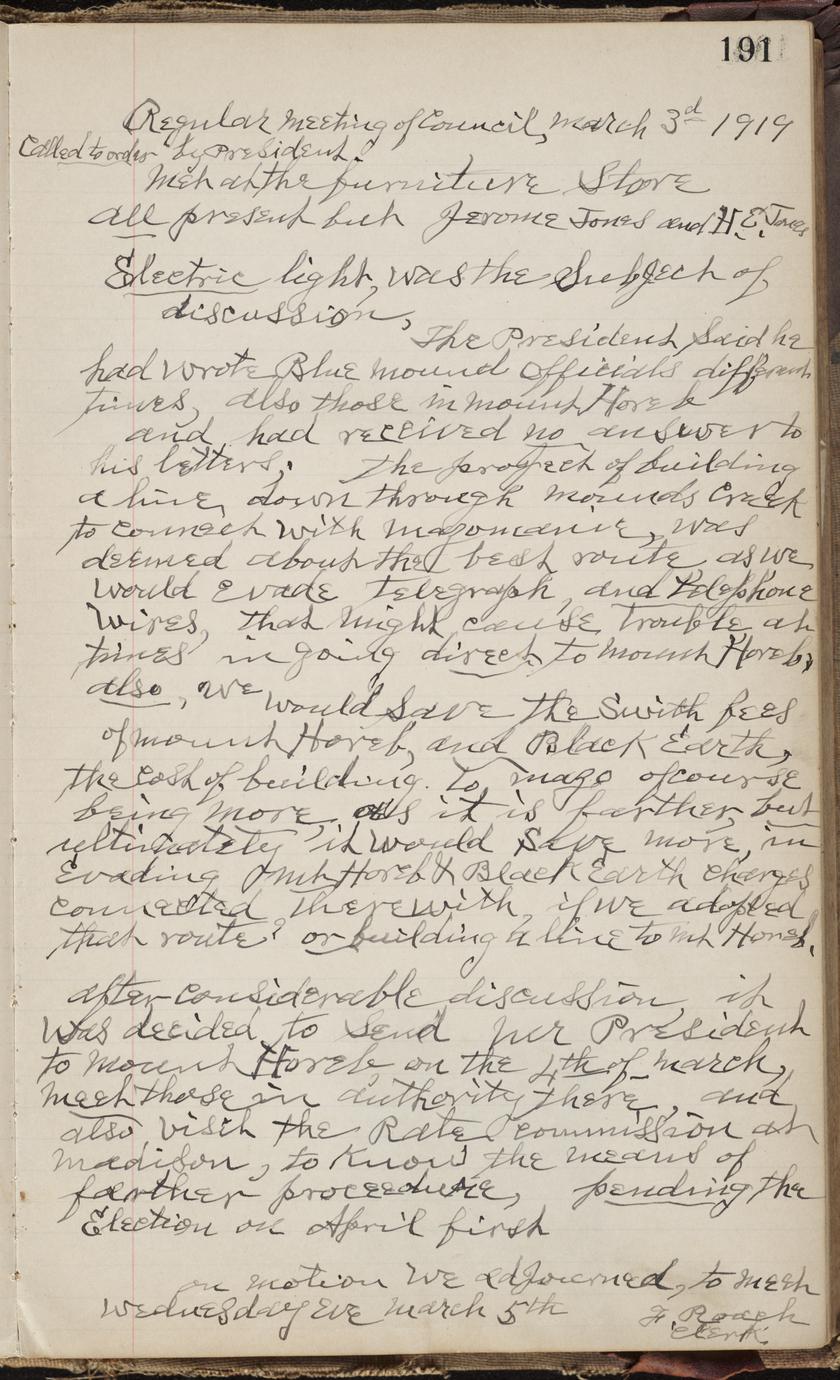 191
Regular meeting of Council, March 3d 1919
Called to order by President.
Met at the furniture Store
all present but Jerome Jones and H. E. Jones
Electric light, was the Subject of
discussion,
The President Said he
had wrote Blue mound officials different
times, also those in mount Horeb
and had received no answer to
his letters. The project of building
a line, down through mounds Creek
to connect with mazomanie, was
deemed about the best route as we
would evade Telegraph, and telephone
wires, that might cause trouble at
times in going direct to mount Horeb,
also, we would Save the Swith fees
of mount Horeb, and Black Earth,
the cost of building to mazo of course
being more, as it is farther, but
ultimately it would Save more, in
Evading mt Horeb & Black Earth charges
connected therewith, if we adopted
that route? or building a line to mt Horeb.
after considerable discussion it
was decided to send our President
to mount Horeb on the 4th of march,
meet those in authority there, and
also visit the Rate commission at
madison, to know the means of
farther proceedure, pending the
Election on April first
on motion we adjourned, to meet
Wednesday eve March 5th F Roach
Clerk.